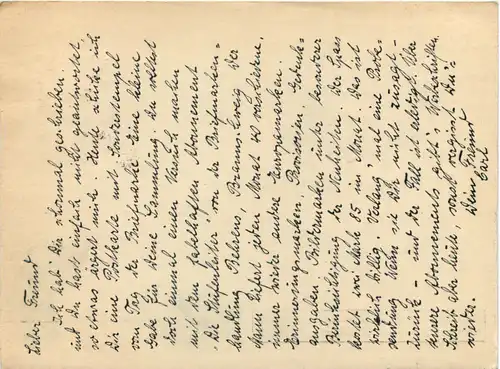 Lieber Freund!
Ich hab Dir schonmal geschrieben,
und Du hast einfach nicht geantwortet,
so etwas ärgert mich. Heute schicke ich
Dir eine Postkarte mit Sonderstempel
vom Tag der Briefmarke. Eine kleine
Gabe für Deine Sammlung. Du solltest
doch einmal einen Versuch machen
mit dem fabelhaften Abonnement
"Die Stufenleiter" von der Briefmarken-
handlung Behrens, Braunschweig. Der
Mann liefert jeden Monat was verschiedenes,
immer wieder andere Europamarken.
Erinnerungsmarken, Provisorien, Gedenk-
ausgaben, Bildermarken unter besonderer
Berücksichtigung der Neuheiten. Der Spass
kostet zwei Mark 85 im Monat. Das ist
wirklich billig. Verlang' mal eine Probe-
sendung. Wenn sie Dir nicht zusagt -
zurück - und der Fall ist erledigt. Über
unsere Abonnements gibt's Vorhaltungen.
Schreib aber heute, sonst vergisst Du's
wieder. Dein Freund
Carl